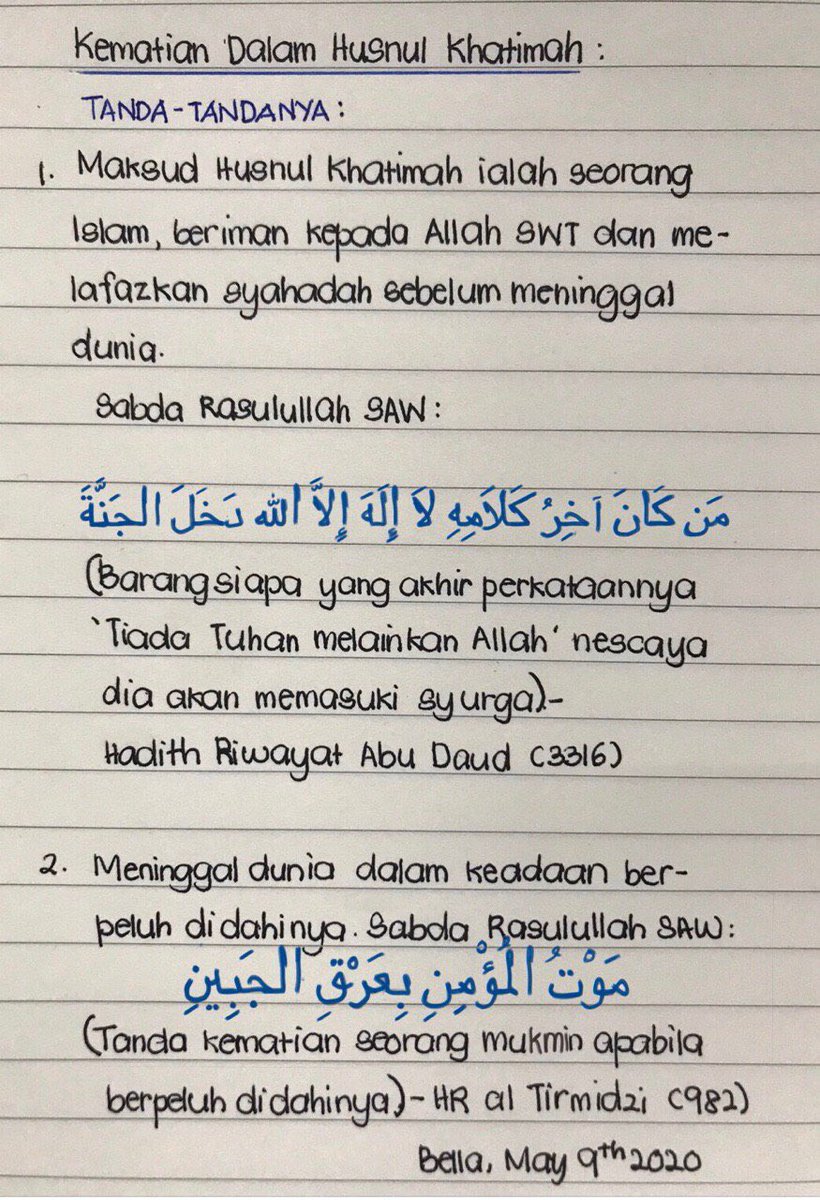 Kematian Dalam Husnul Khatimah :
TANDA-TANDANYA :
1. Maksud Husnul Khatimah ialah seorang
Islam, beriman kepada Allah SWT dan me-
lafazkan syahadah sebelum meninggal
dunia.
Sabda Rasulullah SAW :
مَن كَانَ آخِرُ كَلَامِهِ لاَ إِلَهَ إِلاَّ الله دَخَلَ الجَنَّةَ
(Barangsiapa yang akhir perkataannya
'Tiada Tuhan melainkan Allah' nescaya
dia akan memasuki syurga)-
Hadith Riwayat Abu Daud (3316)
2. Meninggal dunia dalam keadaan ber-
peluh didahinya. Sabda Rasulullah SAW :
مَوْتُ الْمُؤْمِنِ بِعَرَْقِ الجَبِينِ
(Tanda kematian seorang mukmin apabila
berpeluh didahinya)- HR al Tirmidzi (982)
Bella, May 9th 2020